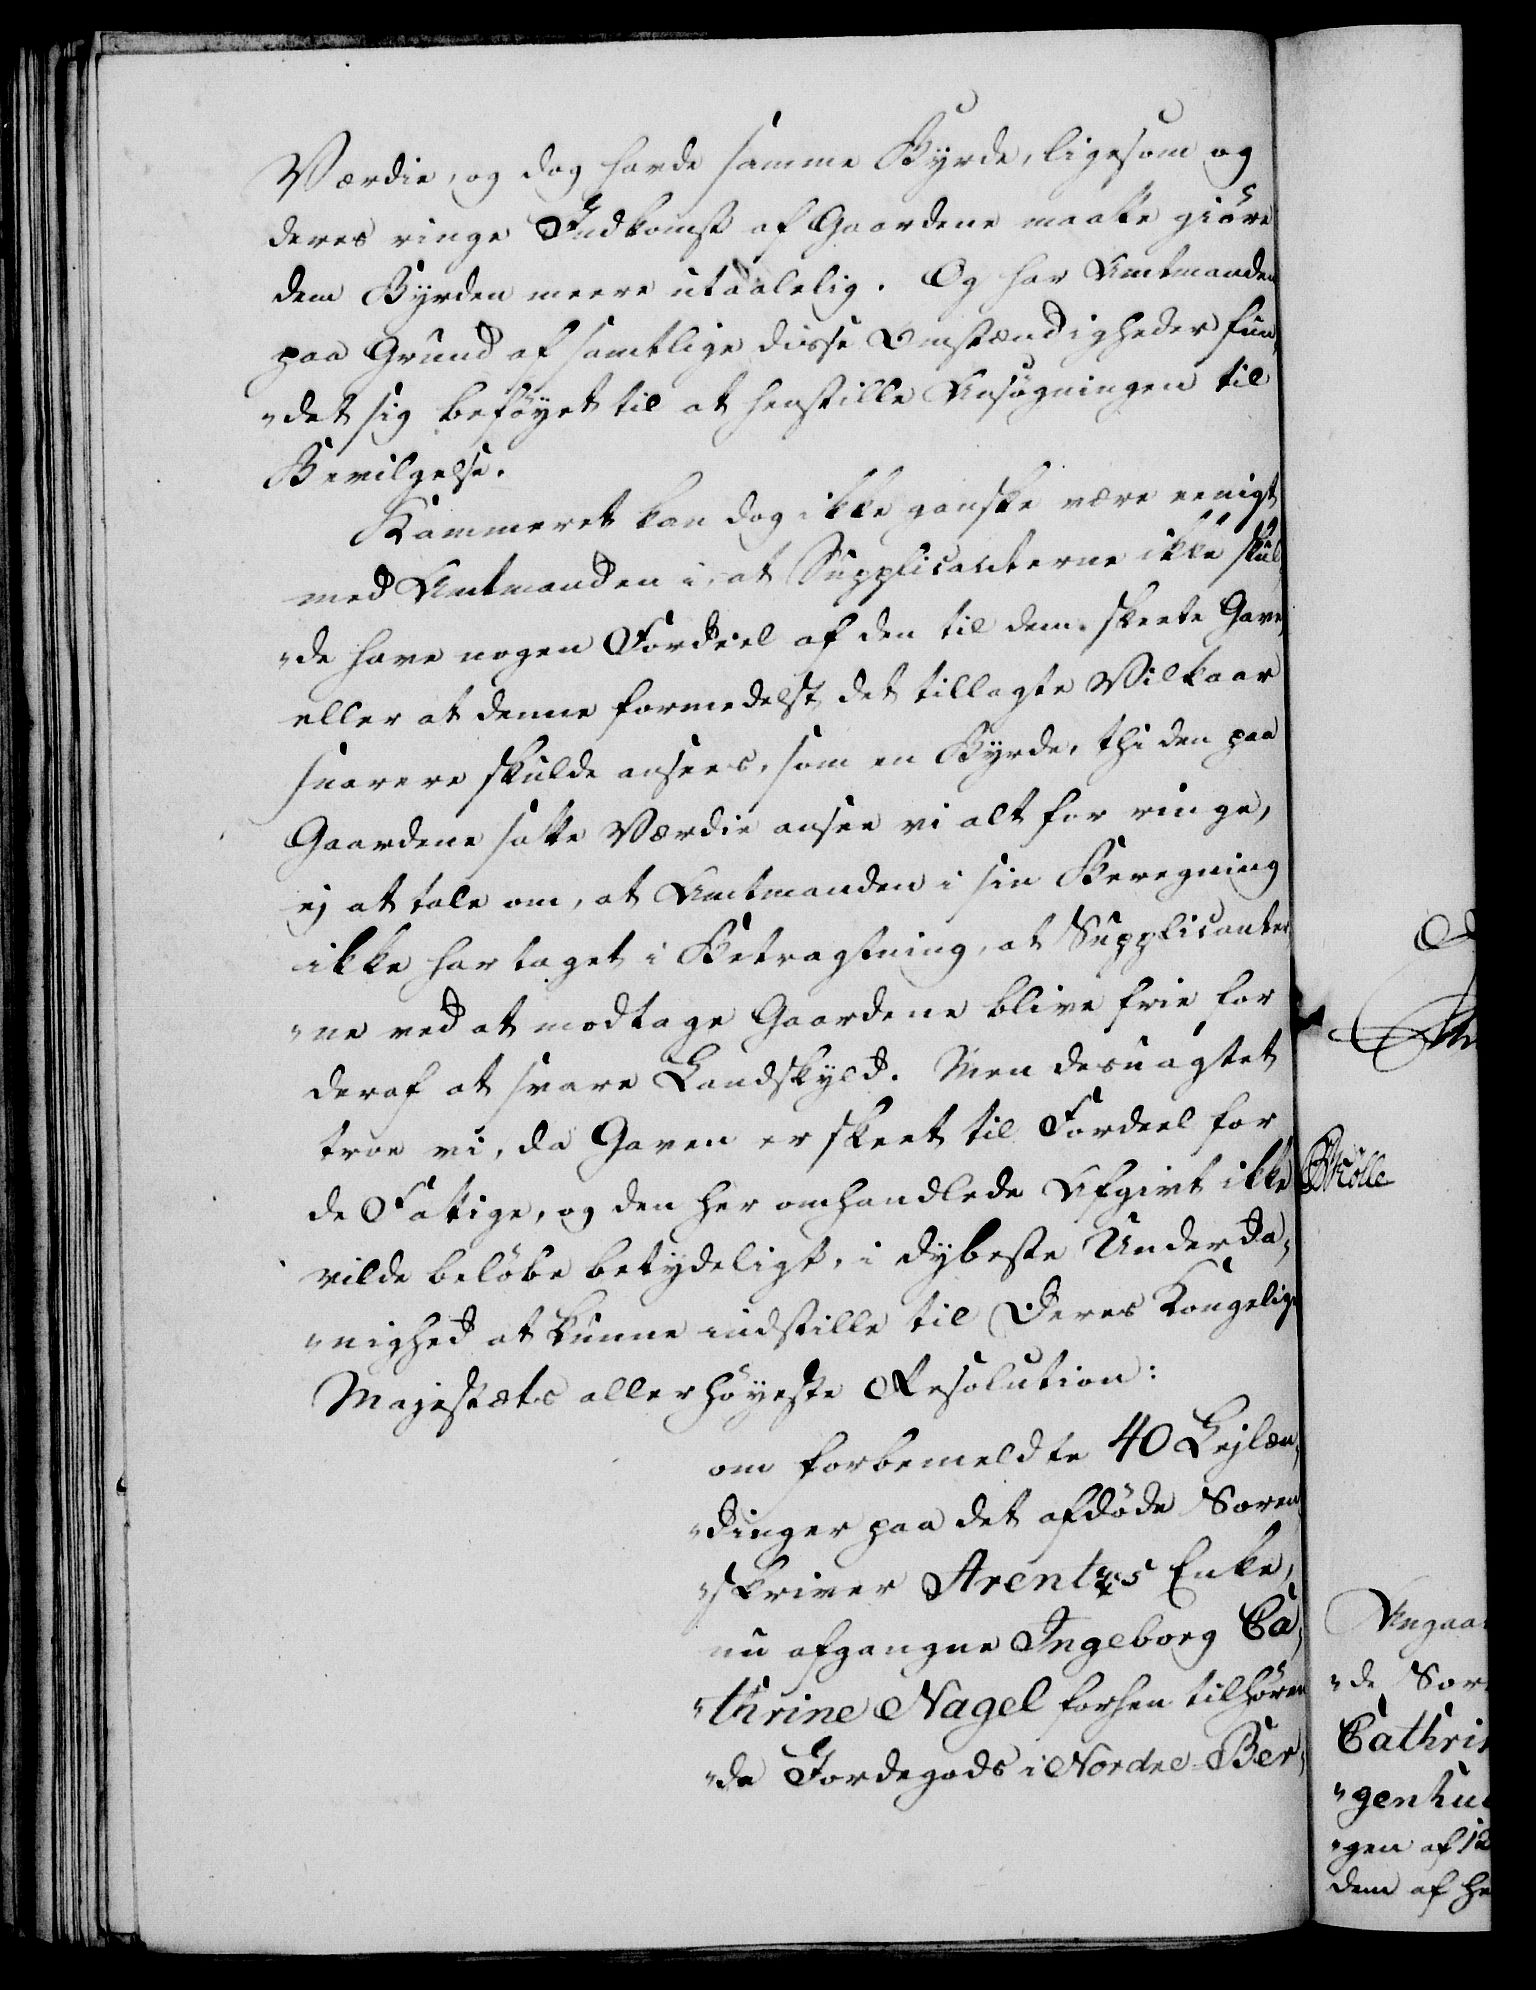 Værdie, og dog havde samme Byrde, ligesom og
deres ringe Indkomst af Gaardene maatte giöre
dem Byrden meere utaalelig. Og har Amtmanden
paa Grund af samtlige disse Omstændigheder fun¬
"det sig beföyet til at henstille Ansögningen til
Bevilgelse.
Kammeret kan dog ikke ganske være eenigt
med Amtmanden i, at Supplicanterne ikke skul¬
"de have nogen Fordeel af den til dem skeete Gave,
eller at denne formedelst det tillagte Vilkaar
snarere skulde ansees, som en Byrde, thi den paa
Gaardene satte Værdie ansee vi alt for ringe,
ej at tale om, at Amtmanden i sin Beregning
ikke har taget i Betragtning, at Supplicanter¬
"ne ved at modtage Gaardene blive frie for
deraf at svare Landskyld. Men desuagtet
troe vi, da Gaven er skeet til Fordeel for
de Fattige, og den her omhandlede Afgivt ikke
vilde belöbe betydeligt, i dybeste Underda¬
"nighed at kunne indstille til Deres Kongelige
Majestæts allerhöyeste Resolution:
om forbemeldte 40 Lejlæn¬
"dinger paa det afdöde Soren¬
"skriver Arentzes Enke,
nu afgangne Ingeborg Ca¬
"thrine Nagel forhen tilhören¬
"de Jordegods i Nordre Ber¬
Mölle
Angaa
"de Sor
Cathri
"genhu
"gen af
dem af